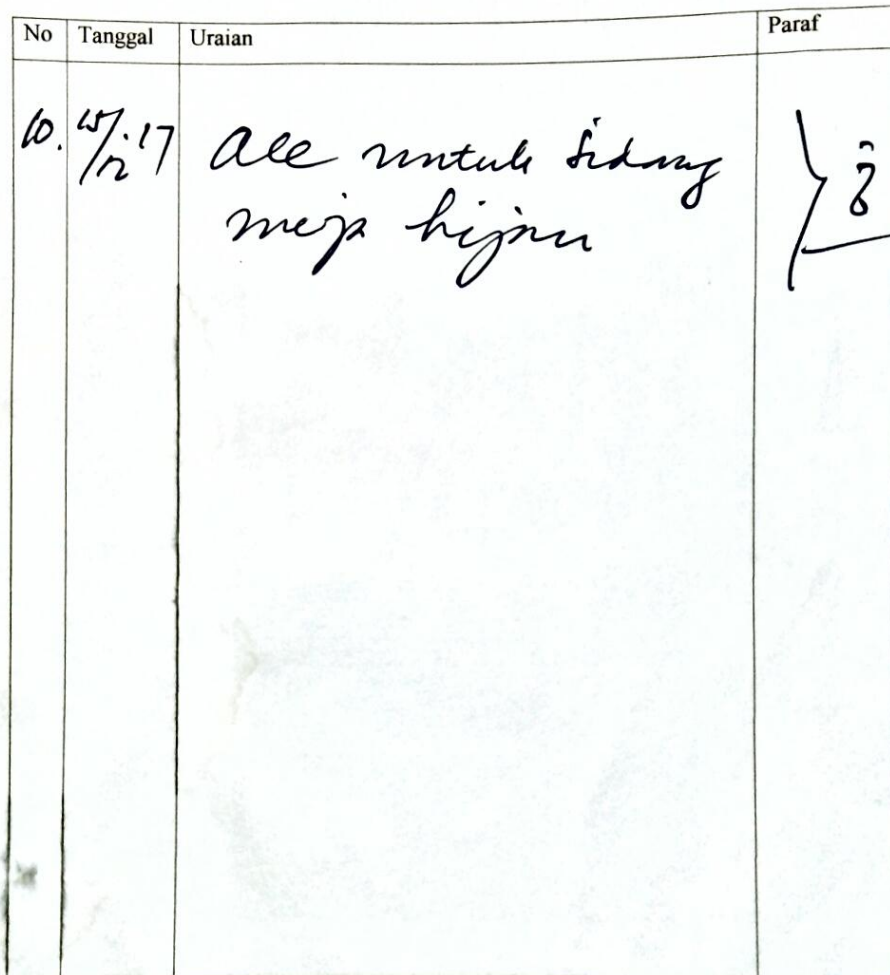 No Tanggal Uraian Paraf
10. 15/12 '17 Acc untuk sidang
meja hijau